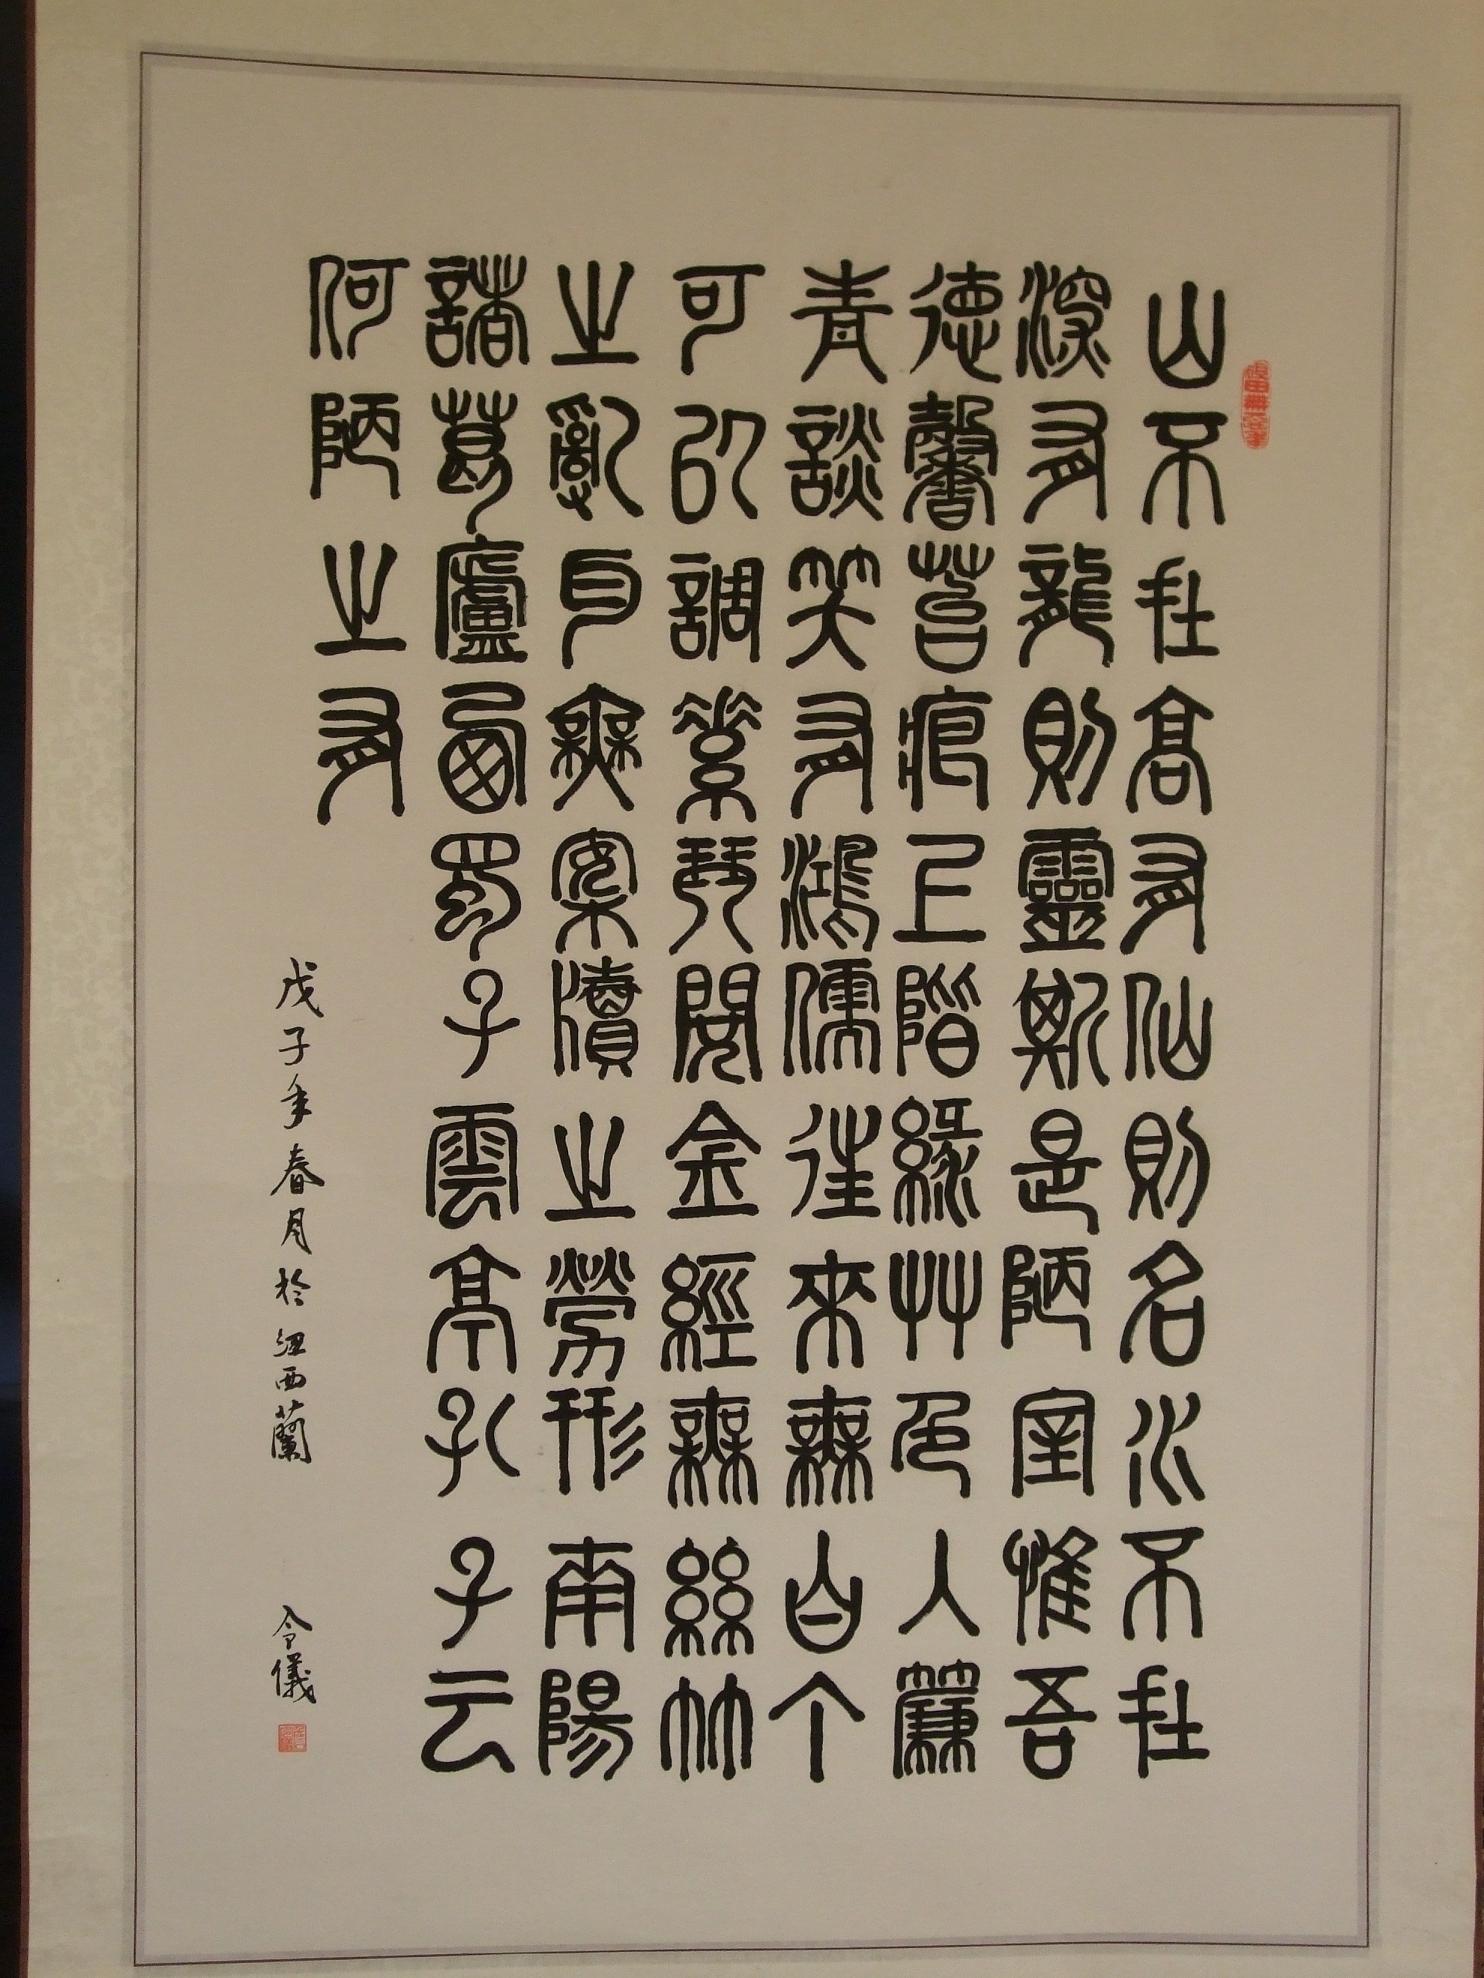 山不在高有仙則名水不在
深有龍則靈斯是陋室惟吾
德馨苔痕上階綠艸色入簾
青談笑有鴻儒往來無白丁
可以調素琴閱金經無絲竹
之亂耳無案牘之勞形南陽
諸葛廬西蜀子雲亭孔子云
何陋之有
戊子年春月於紐西蘭 令儀